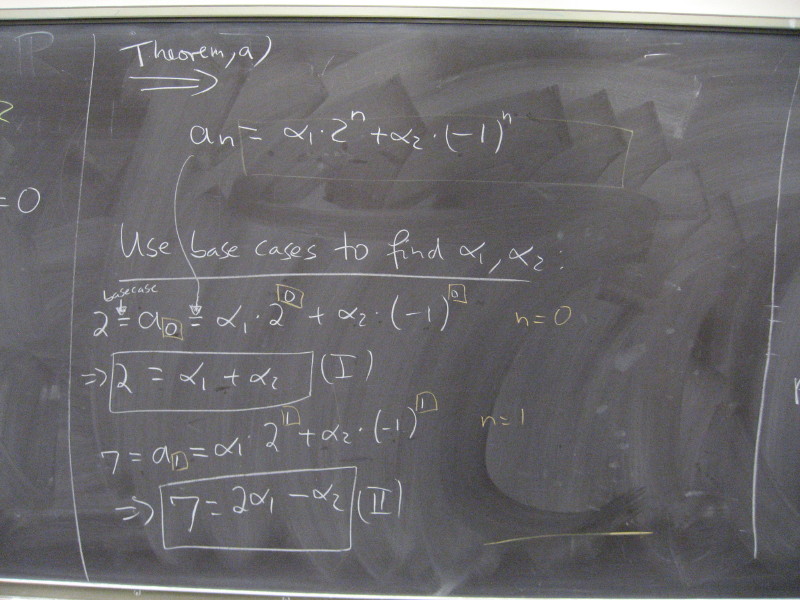 ℝ
2
=0
Theorem, a)
⟹
an = α₁·2ⁿ + α₂·(-1)ⁿ
Use base cases to find α₁, α₂:
base case
2 = a₀ = α₁·2⁰ + α₂·(-1)⁰ n=0
⇒ 2 = α₁ + α₂ (I)
7 = a₁ = α₁·2¹ + α₂·(-1)¹ n=1
⇒ 7 = 2α₁ - α₂ (II)